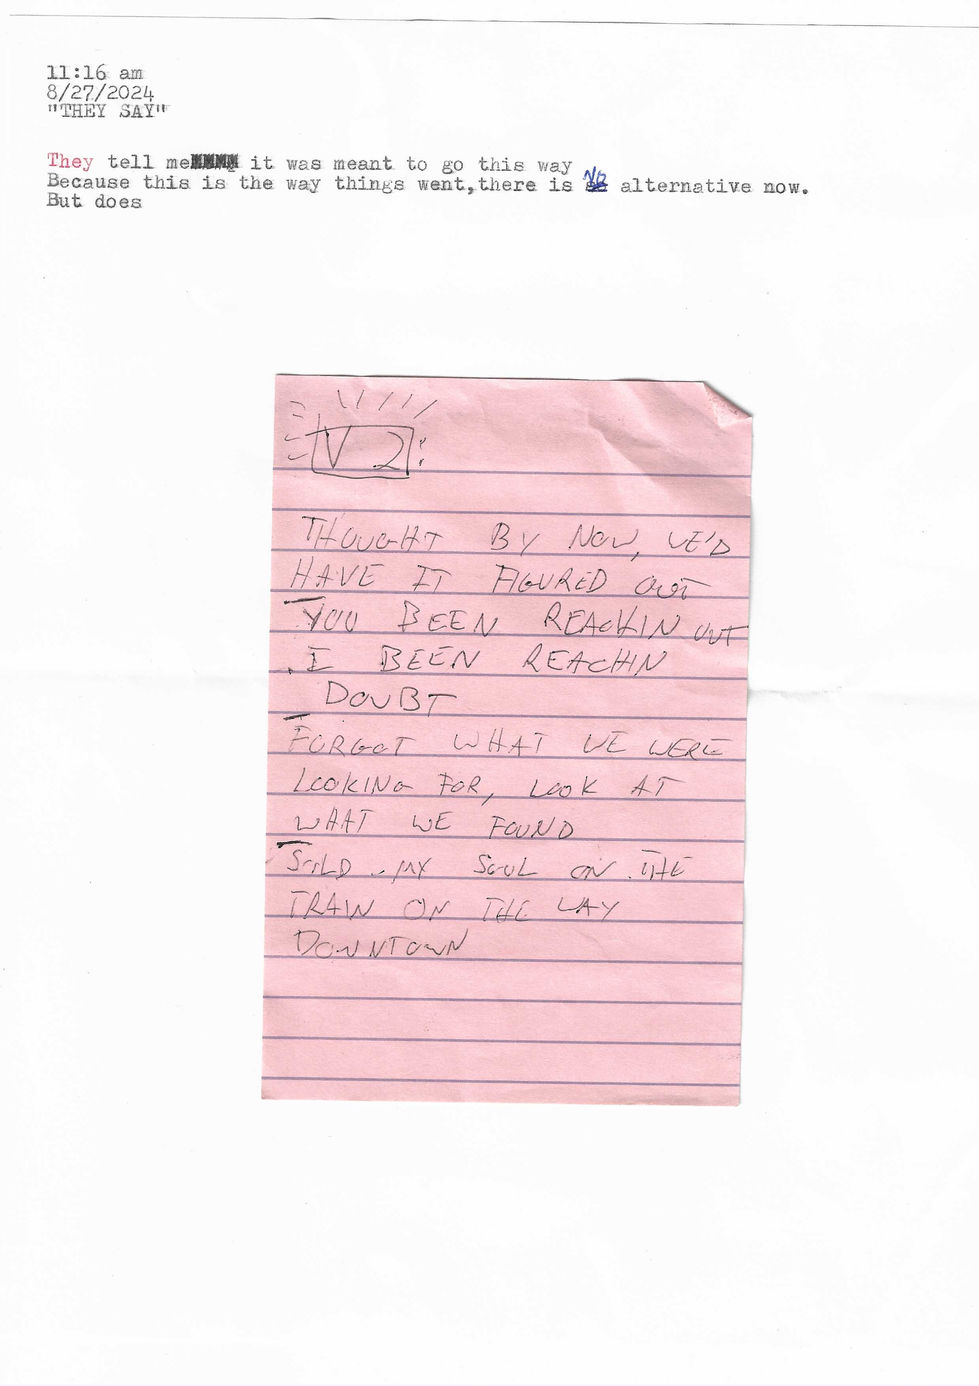 11:16 am
8/27/2024
"THEY SAY"
They tell me it was meant to go this way
Because this is the way things went,there is NO alternative now.
But does
V 2
THOUGHT BY NOW, WE'D
HAVE IT FIGURED OUT
YOU BEEN REACHIN OUT
I BEEN REACHIN
DOUBT
FORGOT WHAT WE WERE
LOOKING FOR, LOOK AT
WHAT WE FOUND
SOLD MY SOUL ON THE
TRAIN ON THE WAY
DOWNTOWN